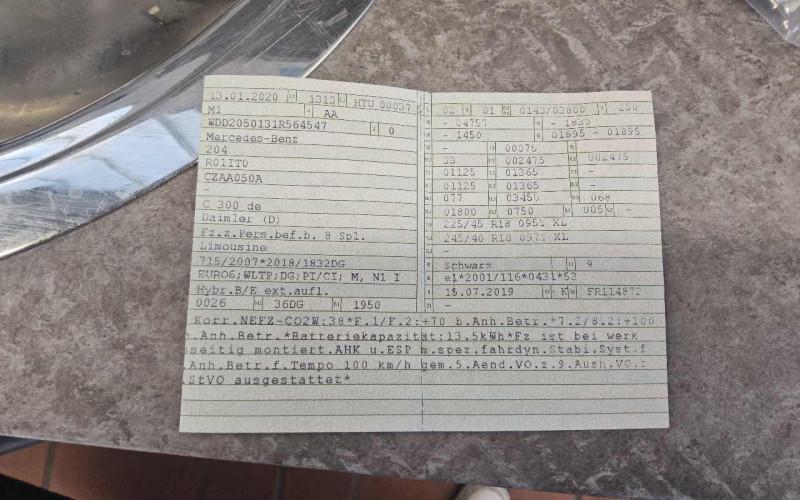 13.01.2020 1313 HTU 00037
M1 AA
WDD2050131R564547 0
Mercedes-Benz
204
R01IT0
CZAA050A
-
C 300 de
Daimler (D)
Fz.z.Pers.bef.b. 8 Spl.
Limousine
715/2007*2018/1832DG
EURO6;WLTP;DG;PI/CI; M, N1 I
Hybr.B/E ext.aufl.
0026 36DG 1950
02 01 0143/03800 250
- 04757 - 1839
- 1450 01895 - 01895
- 00075 -
33 002475 002475
01125 01365 -
01125 01365 -
077 03450 068
01800 0750 005 -
225/45 R18 095Y XL
245/40 R18 097Y XL
-
Schwarz 9
e1*2001/116*0431*53
15.07.2019 K FR114872
Korr.NEFZ-CO2W:38*F.1/F.2:+70 b.Anh.Betr.*7.2/8.2:+100
.Anh.Betr.*Batteriekapazität:13.5kWh*Fz ist bei werk
seitig montiert.AHK u.ESP m.spez.fahrdyn.Stabi.Syst.f
.Anh.Betr.f.Tempo 100 km/h gem.5.Aend.VO.z.9.Ausn.VO.z
.StVO ausgestattet*